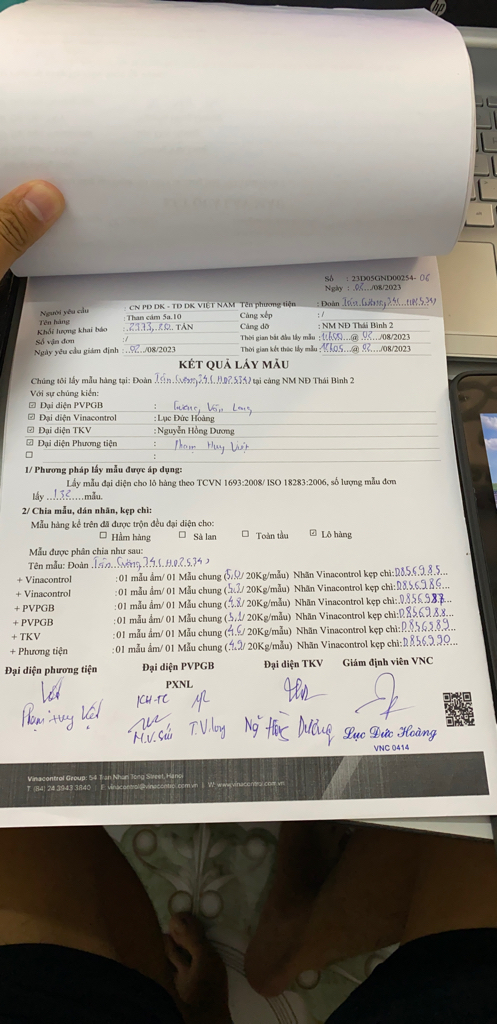 hp
Số : 23D05GND00254- 06
Ngày : .02.../08/2023
Người yêu cầu : CN PĐ DK - TĐ DK VIỆT NAM Tên phương tiện : Đoàn Tân Cường 34 (HD2534)
Tên hàng : Than cám 5a.10 Cảng xếp : /
Khối lượng khai báo : 2173,20 TẤN Cảng dỡ : NM NĐ Thái Bình 2
Số vận đơn :/ Thời gian bắt đầu lấy mẫu : 11h00...@ 02./08/2023
Ngày yêu cầu giám định : .02./08/2023 Thời gian kết thúc lấy mẫu : @ 02../08/2023
KẾT QUẢ LẤY MẪU
Chúng tôi lấy mẫu hàng tại: Đoàn Tân Cường 34 (HD2534) tại cảng NM NĐ Thái Bình 2
Với sự chứng kiến:
☑ Đại diện PVPGB : Văn Long
☑ Đại diện Vinacontrol : Lục Đức Hoàng
☑ Đại diện TKV : Nguyễn Hồng Dương
☑ Đại diện Phương tiện : Phạm Huy Việt
☐ :
1/ Phương pháp lấy mẫu được áp dụng:
Lấy mẫu đại diện cho lô hàng theo TCVN 1693:2008/ ISO 18283:2006, số lượng mẫu đơn
lấy ..132...mẫu.
2/ Chia mẫu, dán nhãn, kẹp chì:
Mẫu hàng kể trên đã được trộn đều đại diện cho:
☐ Hầm hàng ☐ Sà lan ☐ Toàn tàu ☑ Lô hàng
Mẫu được phân chia như sau:
Tên mẫu: Đoàn Tân Cường 34 (HD2534)
+ Vinacontrol :01 mẫu ẩm/ 01 Mẫu chung (5,0/ 20Kg/mẫu) Nhãn Vinacontrol kẹp chì: D856985
+ Vinacontrol :01 mẫu ẩm/ 01 Mẫu chung (5,1/ 20Kg/mẫu) Nhãn Vinacontrol kẹp chì: D856986
+ PVPGB :01 mẫu ẩm/ 01 Mẫu chung (4,8/ 20Kg/mẫu) Nhãn Vinacontrol kẹp chì: D856987
+ PVPGB :01 mẫu ẩm/ 01 Mẫu chung (5,1/ 20Kg/mẫu) Nhãn Vinacontrol kẹp chì: D856988
+ TKV :01 mẫu ẩm/ 01 Mẫu chung (4,6/ 20Kg/mẫu) Nhãn Vinacontrol kẹp chì: D856989
+ Phương tiện :01 mẫu ẩm/ 01 Mẫu chung (4,9/ 20Kg/mẫu) Nhãn Vinacontrol kẹp chì: D856990
Đại diện phương tiện Đại diện PVPGB Đại diện TKV Giám định viên VNC
PXNL
Phạm Huy Việt T.V.Long Ng Hồng Dương Lục Đức Hoàng
VNC 0414
Vinacontrol Group: 54 Tran Nhan Tong Street, Hanoi
T: (84) 24 3943 3840 | E: vinacontrol@vinacontrol.com.vn | W: www.vinacontrol.com.vn